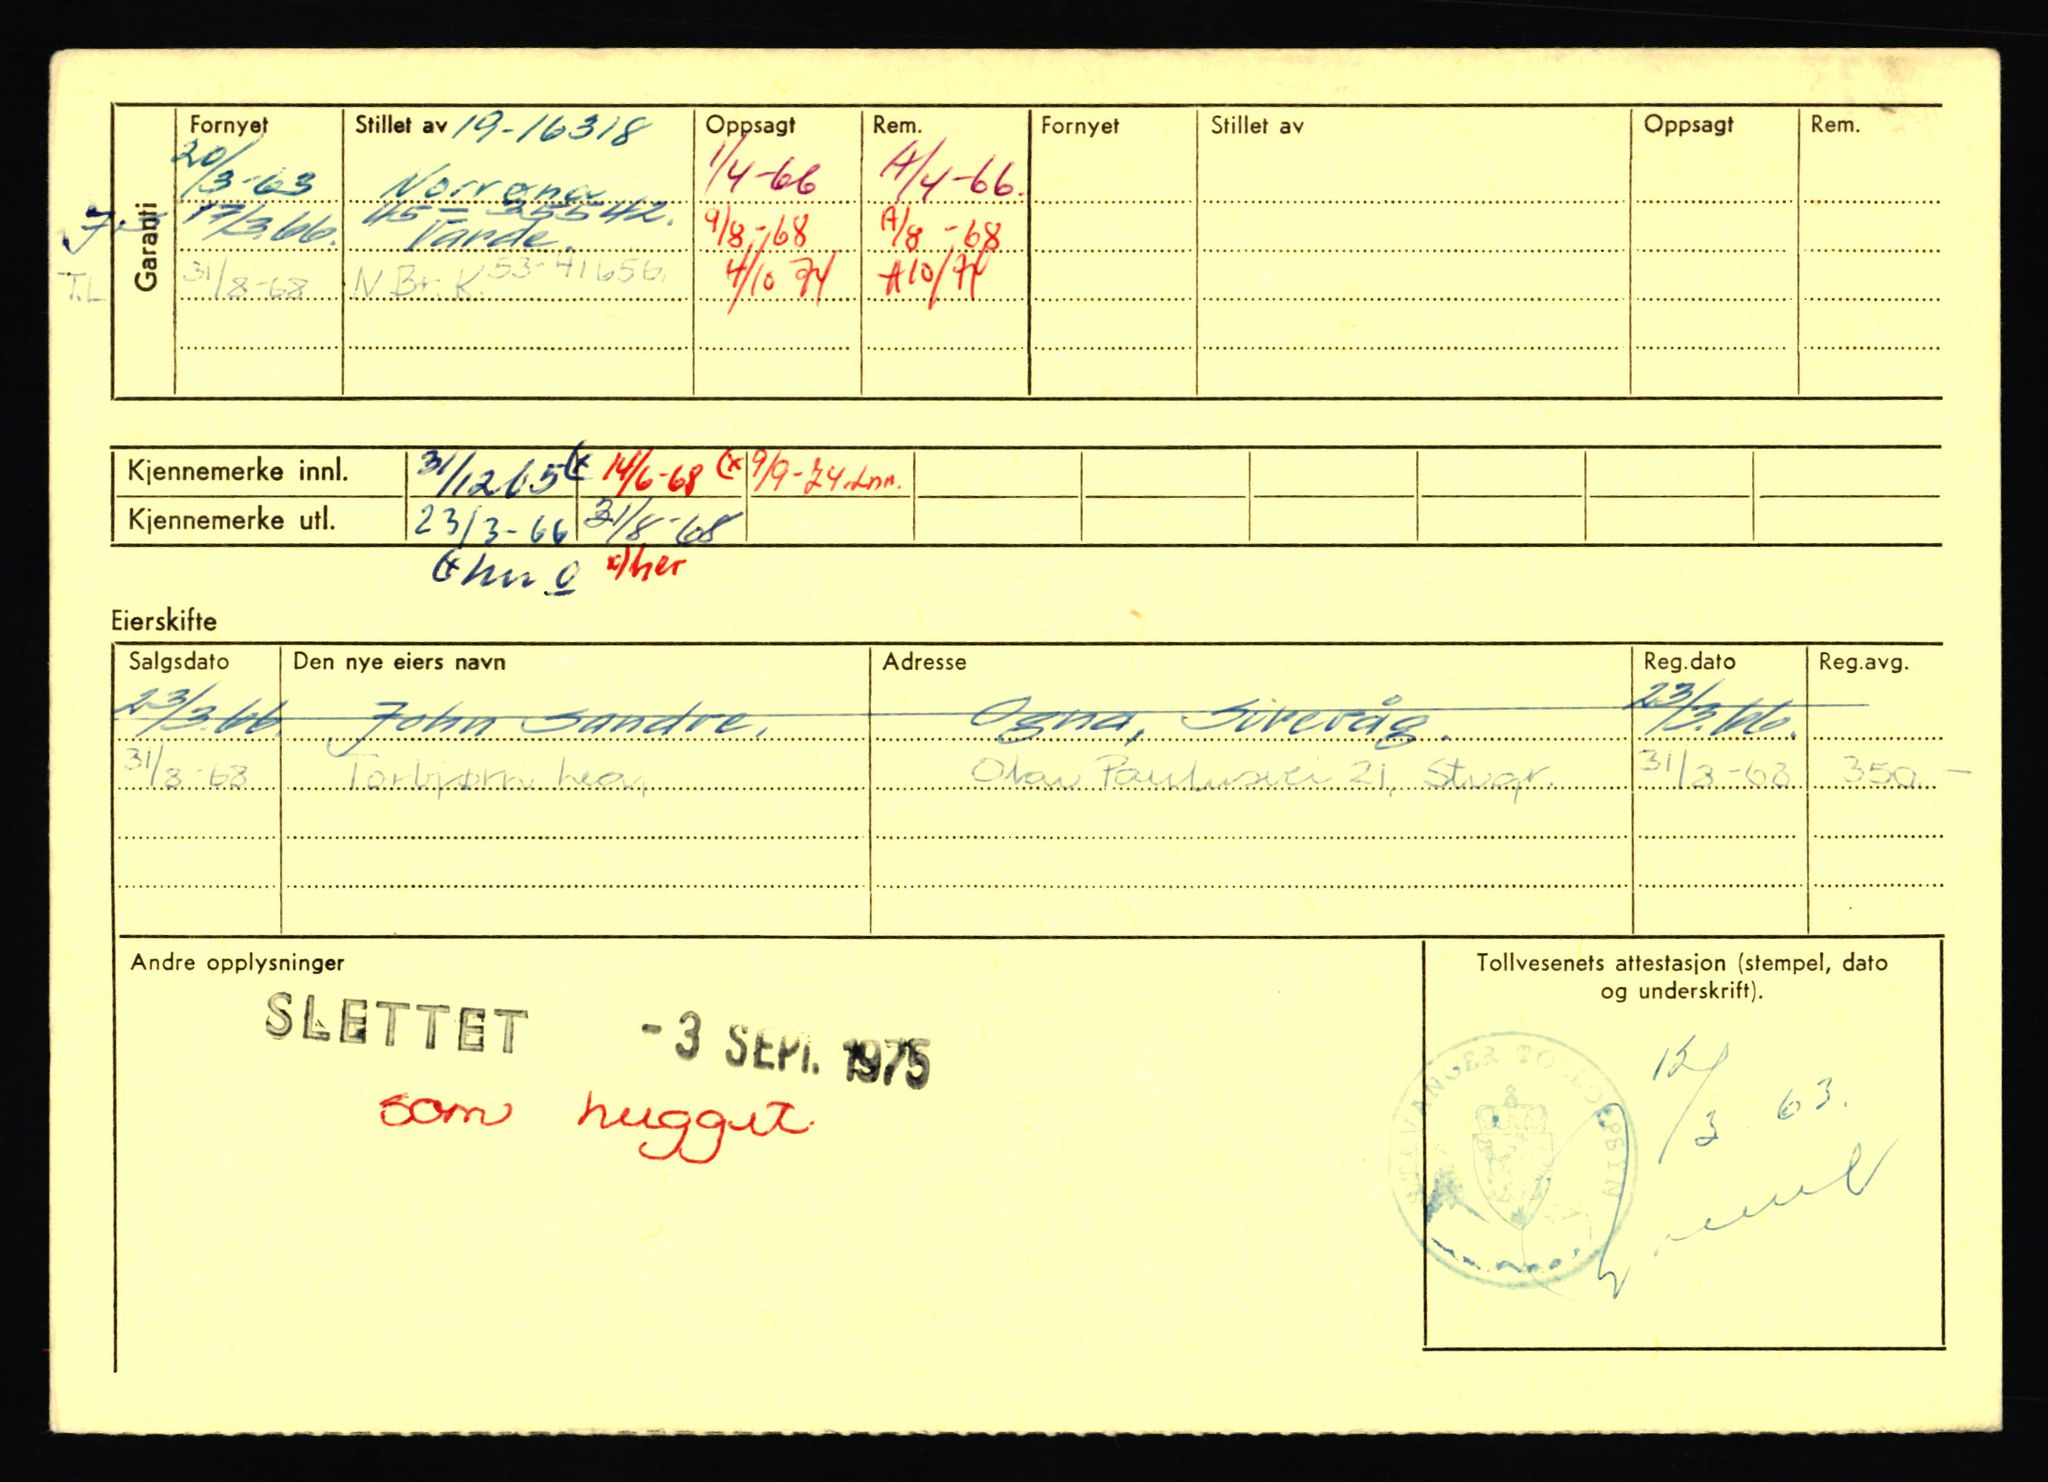 Garanti
Fornyet Stillet av 19-16318 Oppsagt Rem. Fornyet Stillet av Oppsagt Rem.
20/3-63 Norrøna 1/4-66 A/4-66.
17/3.66. 45-35542. Varde. 9/8-68 A/8-68
T.L 31/8-68 N.Br.K. 53-41656. 4/10 74 A10/74
Kjennemerke innl. 31/12 65 (x 14/6-68 (x 9/9-74.
Kjennemerke utl. 23/3-66 31/8-68
x) her
Eierskifte
Salgsdato Den nye eiers navn Adresse Reg.dato Reg.avg.
23/3.66. John Sandve. Ogna, Sirevåg. 23/3.66.
31/8-68 Torbjørn Lea, Olav Paulusvei 21, Stvgr. 31/8-68 350.-
Andre opplysninger
SLETTET -3 SEPT. 1975
som hugget.
Tollvesenets attestasjon (stempel, dato
og underskrift).
STAVANGER TOLLOPPSYN
12/3 63.